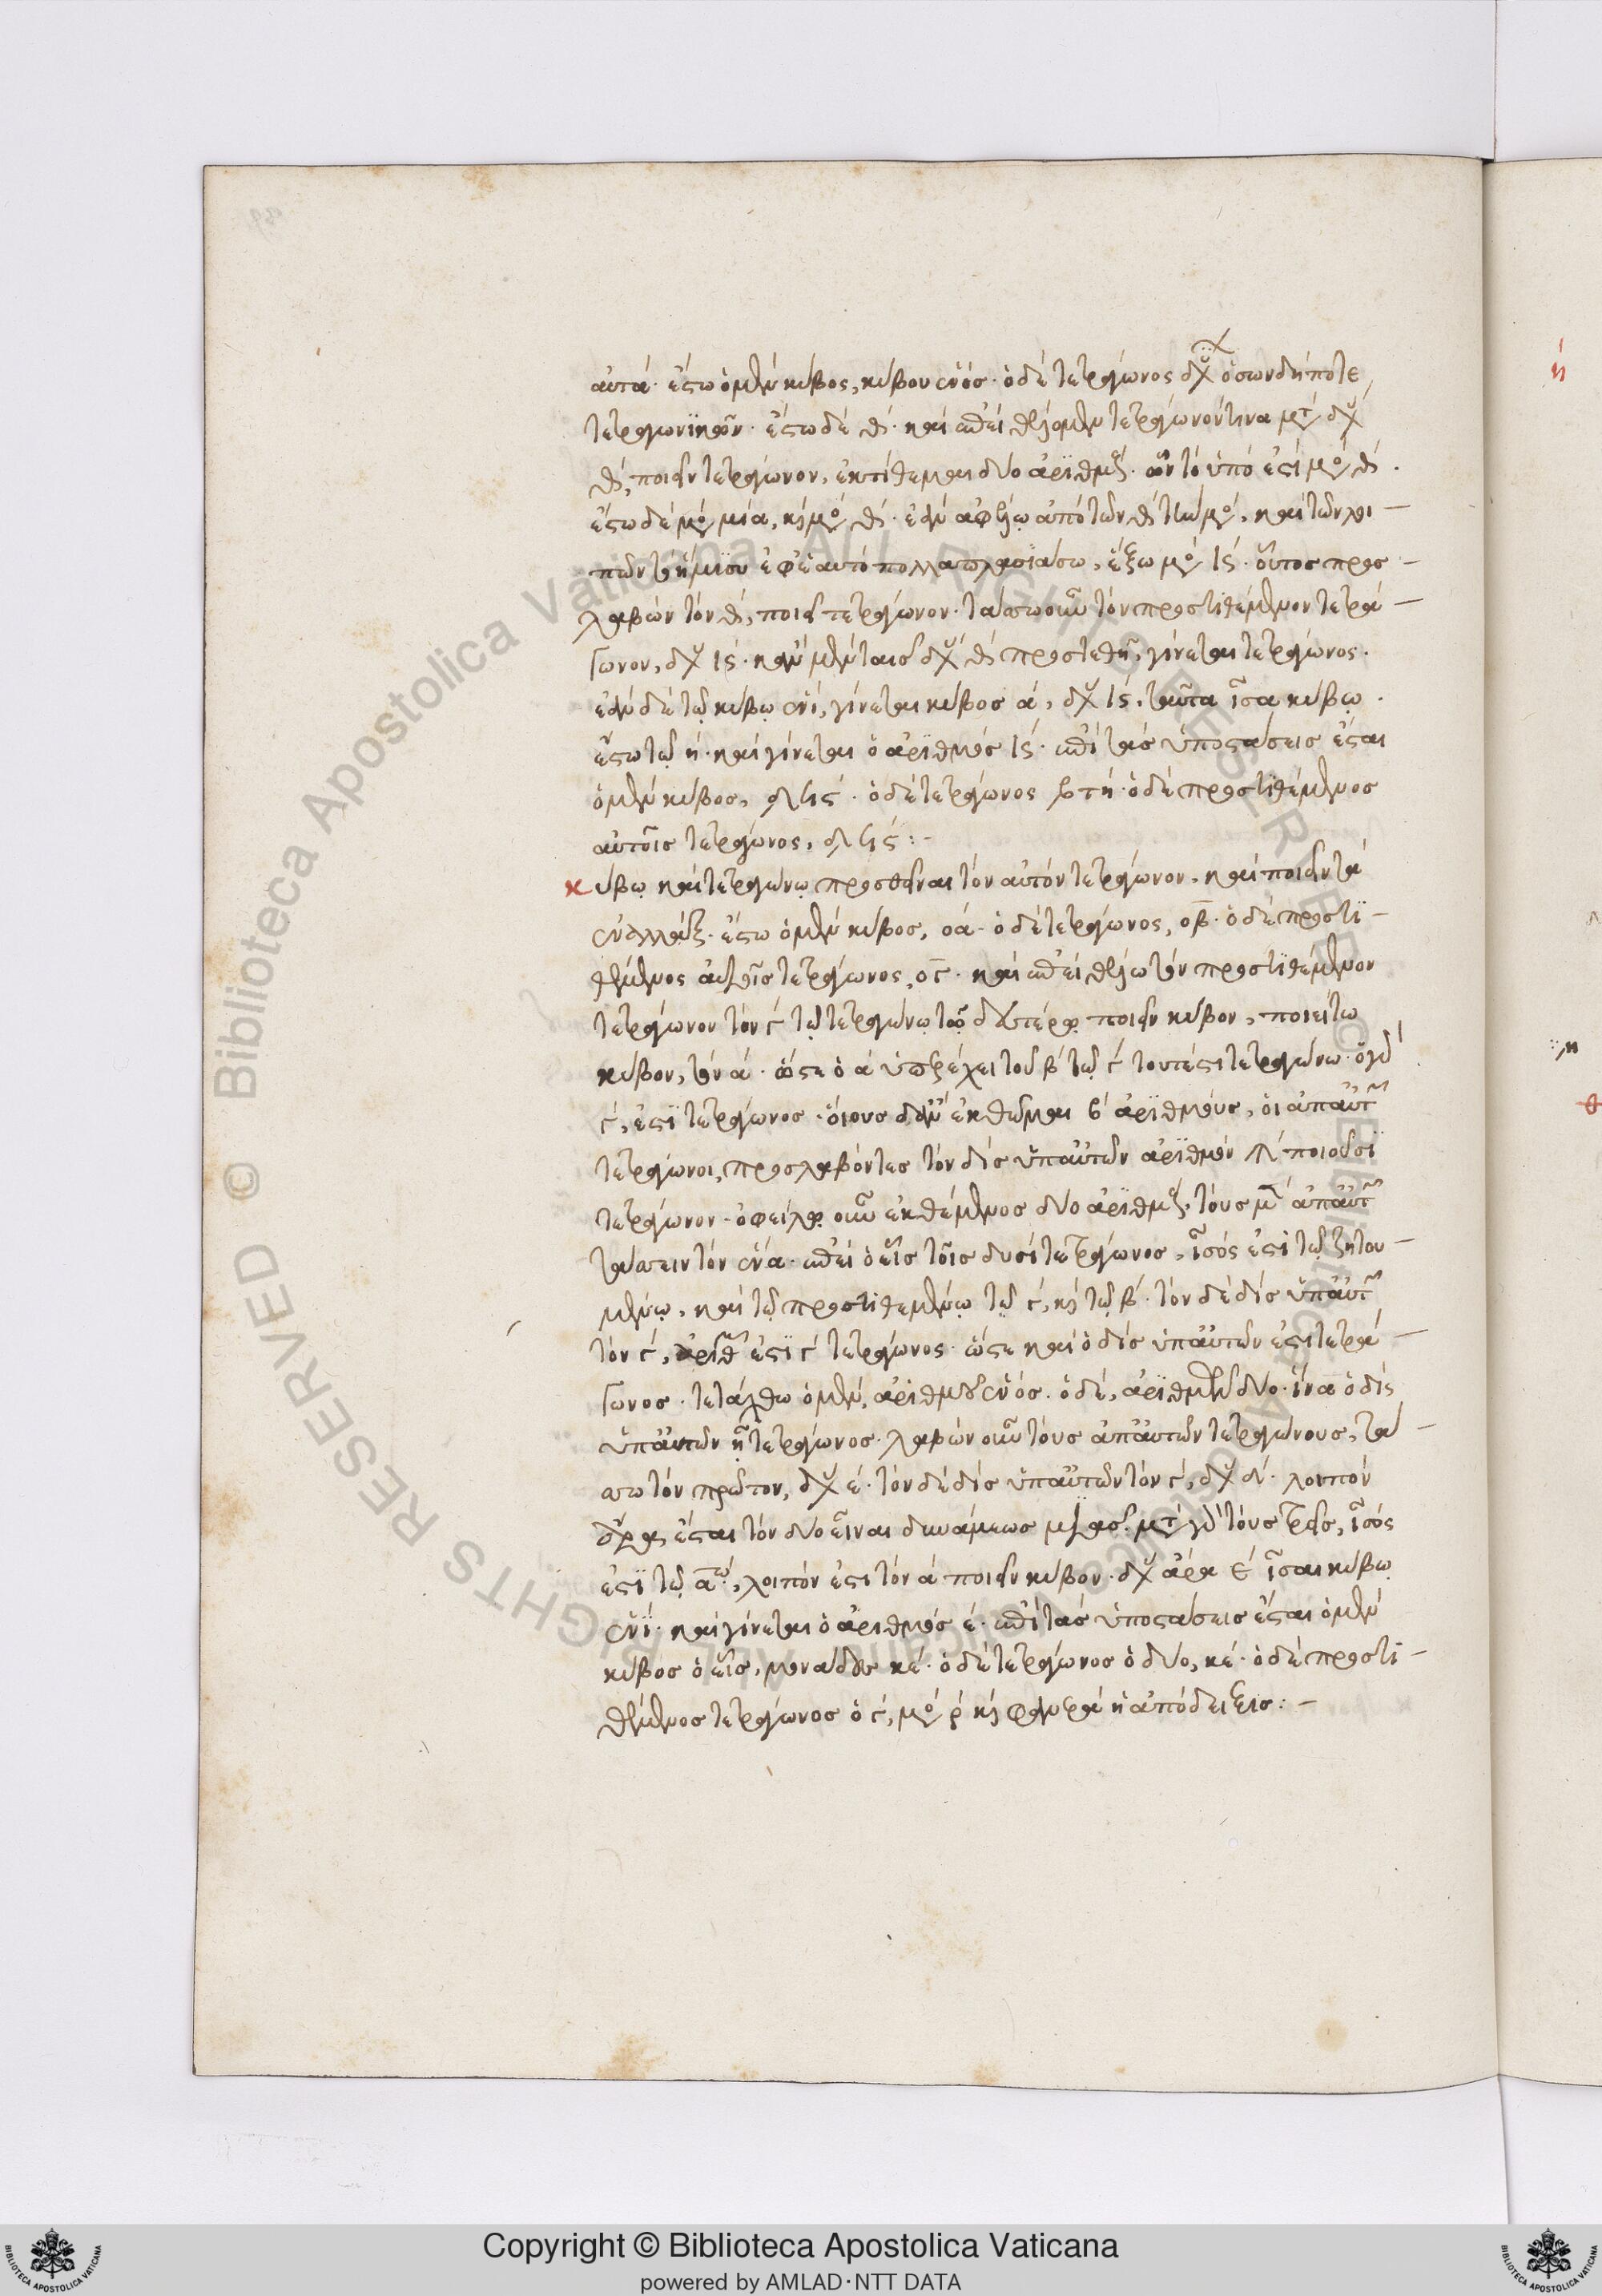 αὐτά. ἔστω ὁ μὲν κύβος, κύβου ἑνός. ὁ δὲ τετράγωνος δυ ὁσωνδήποτε
τετραγωνικῶν. ἔστω δὲ θ. καὶ ἐπεὶ θέλομεν τετράγωνόν τινα μετὰ δυ
θ, ποιεῖν τετράγωνον, ἐκτίθεμαι δύο ἀριθμοὺς. ὧν τὸ ὑπό ἐστι μο θ.
ἔστω δὲ μο μία, κὶ μο θ. ἐὰν ἀφέλω ἀπὸ τῶν θ τὴν μο, καὶ τῶν λοι–
πῶν τὸ ἥμισυ ἐφ' ἑαυτὸ πολλαπλασιάσω, ἕξω μο ις. οὗτος προσ–
λαβὼν τὸν θ, ποιεῖ τετράγωνον. τάσσω οὖν τὸν προστιθέμενον τετρά–
γωνον, δυ ις. κἂν μὲν ταῖς δυ θ προστεθῆ, γίνεται τετράγωνος.
ἐὰν δὲ τῷ κύβῳ ἑνί, γίνεται κύβος ά, δυ ις. ταῦτα ἴσα κύβῳ.
ἔστω τῷ ή. καὶ γίνεται ὁ ἀριθμός ις. ἐπὶ τὰς ὑποστάσεις ἔσται
ὁ μὲν κύβος, . ὁ δὲ τετράγωνος βτή. ὁ δὲ προστιθέμενος
αὐτοῖς τετράγωνος, :–
κύβῳ καὶ τετραγώνῳ προσθεῖναι τὸν αὐτὸν τετράγωνον, καὶ ποιεῖν τὰ
ἐναλλάξ. ἔστω ὁ μὲν κύβος, ὁ ά. ὁ δὲ τετράγωνος, ὁ β. ὁ δὲ προστι–
θέμενος αὐτοῖς τετράγωνος, ὁ γ. καὶ ἐπεὶ θέλω τὸν προστιθέμενον
τετράγωνον τὸν γ τῷ τετραγώνῳ τῷ δευτέρῳ ποιεῖν κύβον, ποιείτω
κύβον, τὸν ά. ὥστε ὁ ά ὑπερέχει τοῦ β τῷ γ τουτέστι τετραγώνω. ὁ γὰρ
γ, ἐστὶ τετράγωνος. ἐκθῶμαι β ἀριθμούς, οἱ ἀπ' αὐτῶν
τετράγωνοι, προσλαβόντες τὸν δὶς ὑπ' αὐτῶν ἀριθμὸν ποιοῦσι
τετράγωνον. ὀφείλω οὖν ἐκθέμενος δύο ἀριθμοὺς, τοὺς μὲν ἀπ' αὐτῶν
τάσσειν τὸν ἕνα. ἐπεὶ ὁ εἷς τοῖς δυσὶ τετράγωνος, ἴσός ἐστὶ τῷ ζητου–
μένῳ, καὶ τῷ προστιθεμένῳ τῷ γ, κὶ τῷ β. τὸν δὲ δὶς ὑπ' αὐτῶν
τὸν γ, ἐστὶ γ τετράγωνος. ὥστε καὶ ὁ δὶς ὑπ' αὐτῶν ἐστι τετρά–
γωνος. τετάχθω ὁ μὲν, ἀριθμοῦ ἑνός. ὁ δὲ, ἀριθμῶν δύο. ἵνα ὁ δὶς
ὑπ' αὐτῶν ᾖ τετράγωνος. λαβὼν οὖν τοὺς ἀπ' αὐτῶν τετραγώνους, τάσ–
σω τὸν πρῶτον, δυ έ. τὸν δὲ δὶς ὑπ' αὐτῶν τὸν γ, δυ δ. λοιπὸν
ἄρα ἔσται τὸν δύο εἶναι δυνάμεως μιᾶς. μετὰ γὰρ τοὺς τρεῖς, ἴσός
ἐστὶ τῷ αῳ, λοιπόν ἐστι τὸν ά ποιεῖν κύβον. δυ ἄρα ε ἴσαι κύβῳ
ἑνί. καὶ γίνεται ὁ ἀριθμός έ. ἐπὶ τὰς ὑποστάσεις ἔσται ὁ μὲν
κύβος ὁ εἷς, μονάδων κέ. ὁ δὲ τετράγωνος ὁ δύο, κέ. ὁ δὲ προστι–
θέμενος τετράγωνος ὁ γ, μο ρ κὶ φανερὰ ἡ ἀπόδειξις:–
Copyright © Biblioteca Apostolica Vaticana
powered by AMLAD·NTT DATA
© Biblioteca Apostolica Vaticana ALL RIGHTS RESERVED